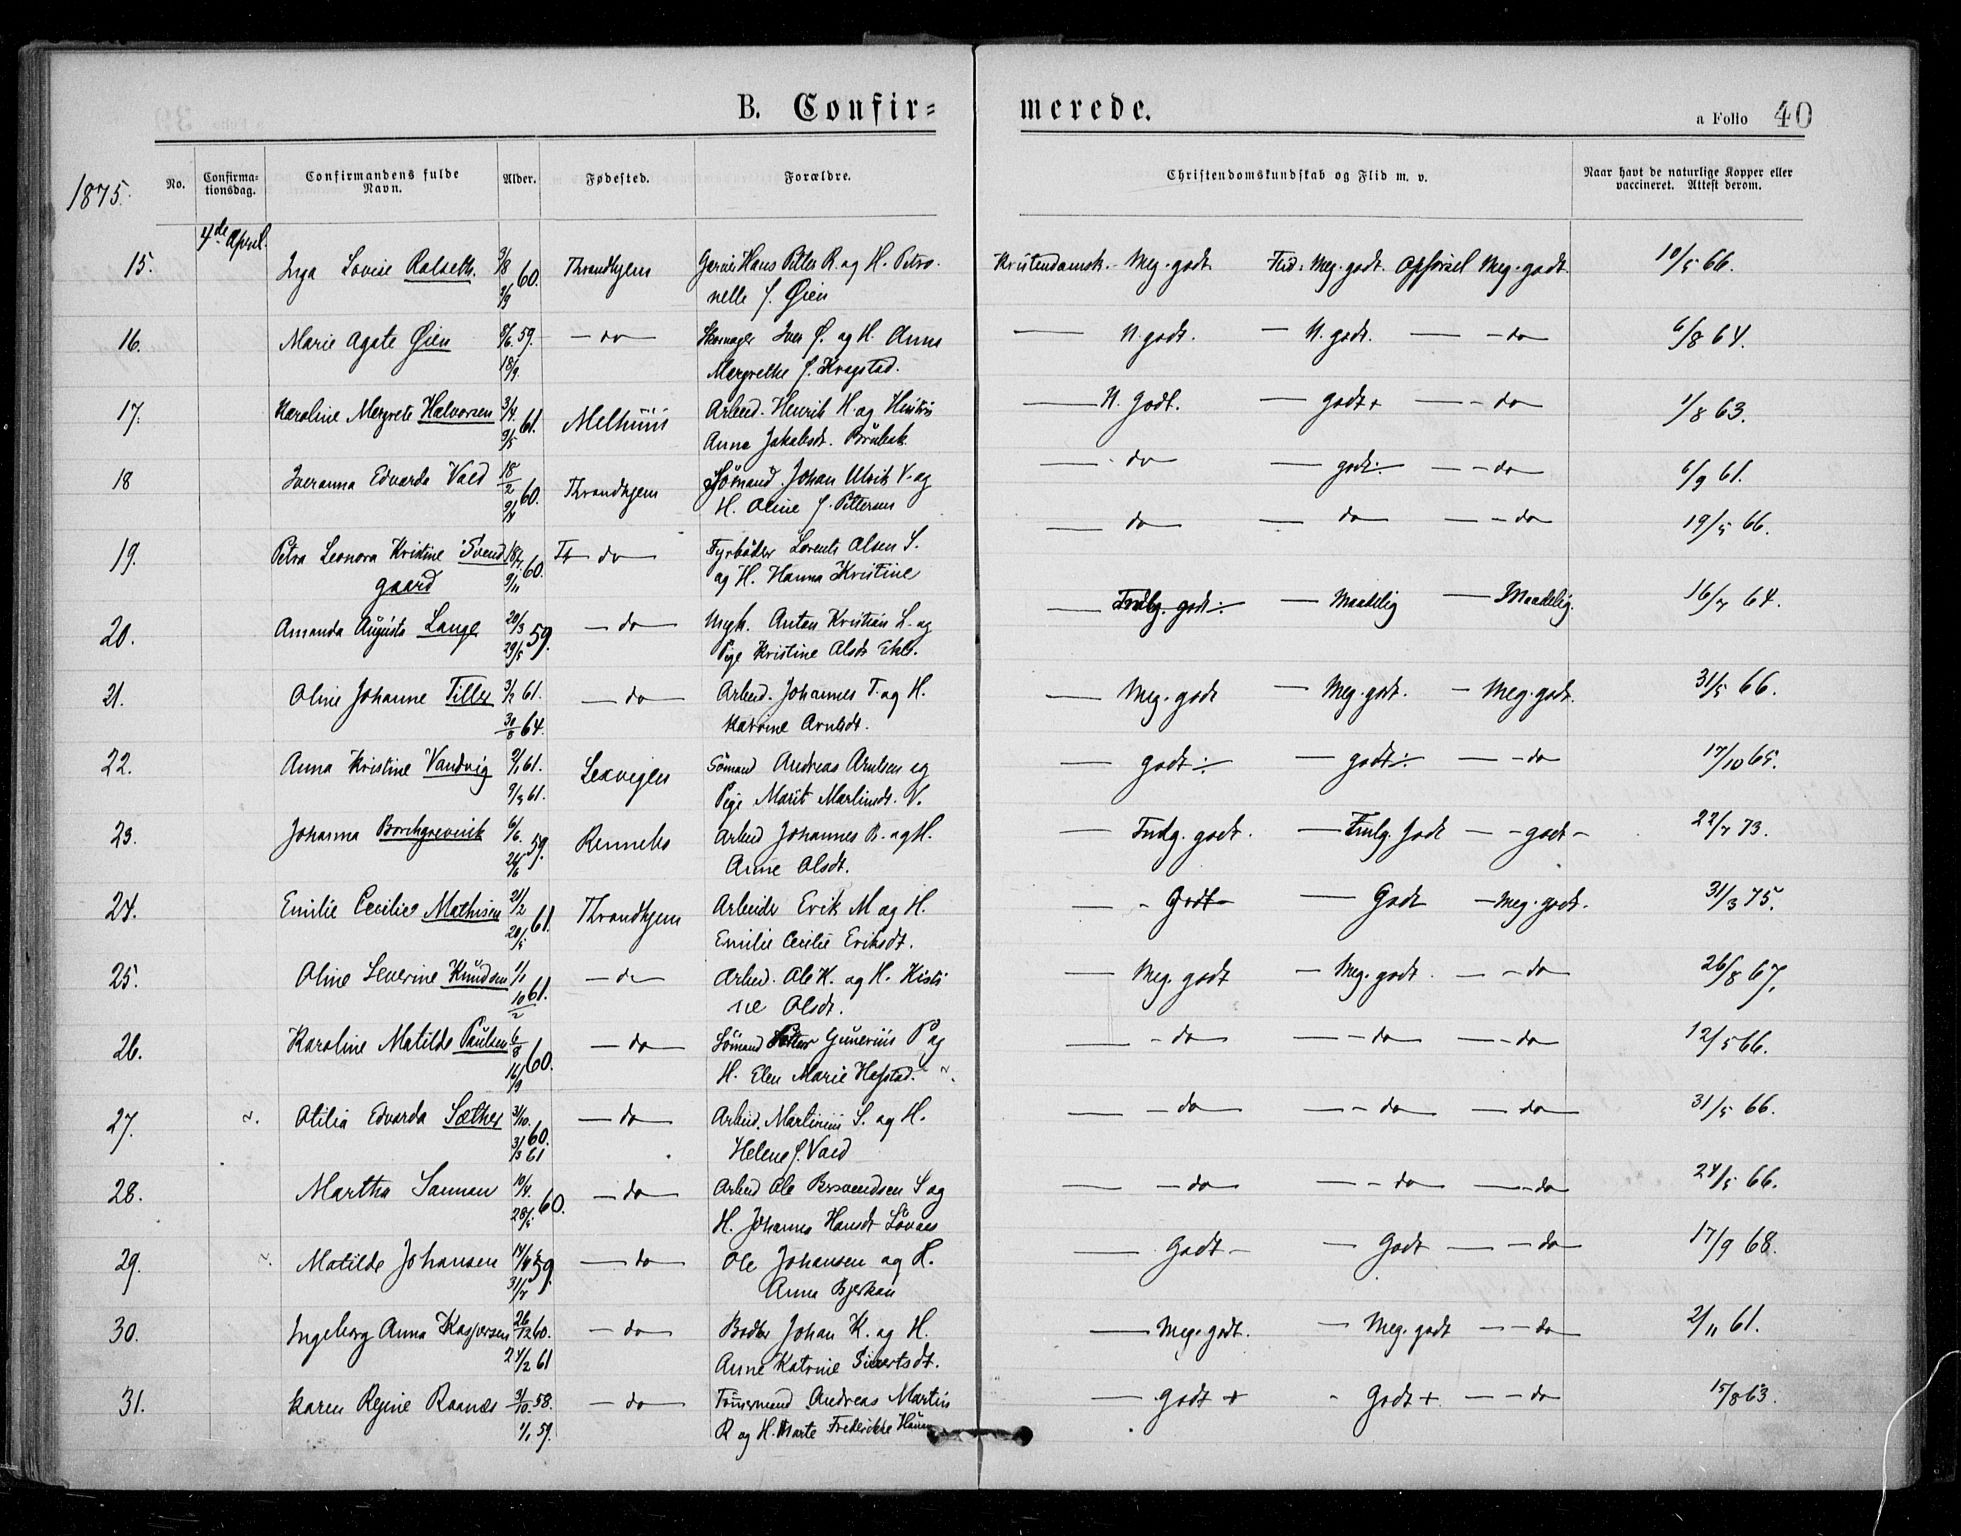 B. Confir= merede.
a Folio 40
1875.
No. Confirma-tionsdag. Confirmandens fulde Navn. Alder. Fødested. Forældre. Christendomskundskab og Flid m. v. Naar havt de naturlige Kopper eller vaccineret. Attest derom.
4de April.
15. Inga Lovise Ralseth. 3/8 60. Throndhjem Hans Petter R. og H. Petro- Kristendomsk. Meg. godt. Flid. Meg. godt. Opførsel Meg. godt. 10/5 66.
nelle f. Øien
16. Marie Agate Øien 8/6 59. — do — Skomager Iver Ø. og H. Anna — N. godt. — N. godt. — — do 6/8 64.
18/9. Mergrethe f. Kragstad.
17. Karoline Mergrete Halvorsen 3/4 61. Melhuus Arbeid. Henrik H. og Hustru — N. godt. — godt+ — — do 1/8 63.
9/5 Anna Jakobsdt.
18 Iveranna Edvarda Vold 18/2 60. Throndhjem Sømand Johan Ulrik V. og — do — godt — — do 6/9 61.
9/4 H. Oline f. Pettersen
19. Petra Leonora Kristine Svend 18/7 60. — do — Fyrbøder Lorents Olsen S. — do — do — — do 19/5 66.
gaard 9/11 og H. Hanna Kristine
20. Amanda Augusta Lange 20/3 59. — do — Ungk. Anton Kristian L. og — Tmlg. godt — Maadelig — Maadelig. 16/7 64.
29/5 Pige Kristine Olsdt.
21. Oline Johanne Tiller 3/2 61. — do — Arbeid. Johannes T. og H. — Meg. godt — Meg. godt. — Meg. godt. 31/5 66.
30/8 64. Katrine Arntsdt.
22. Anna Kristine Vandvig 9/1 61. Lexvigen Sømand Andreas Arntsen og — godt — godt — — do 17/10 65.
9/3 61. Pige Marit Martinsdt. V.
23. Johanna Borchgrevink 6/6 59. Rennebo Arbeid Johannes B. og H. — Tmlg. godt. — Tmlg. godt — — godt — 22/7 73.
24/6 Anne Olsdt.
24. Emilie Cecilie Mathisen 21/2 61. Throndhjem Arbeider Erik M og H. — Godt — Godt — Meg. godt. 31/3 75.
20/5 Emilie Cecilie Eriksdt.
25. Oline Severine Knudsen 1/1 61. — do Arbeid. Ole K. og H. Kisti — Meg. godt — Meg. godt. — — do 26/8 67.
10/2 ne Olsdt.
26. Karoline Matilde Paulsen 6/8 60. — do Sømand Petter Gunerius P og — — do — — do — — do 12/5 66.
16/9 H. Elen Marie Hafstad.
27. Otilia Edvarda Sæther 3/10. 60. — do — Arbeid. Martinus S. og H. — — do — — do — do 31/5 66.
3/3 61 Helene f. Vold
28. Martha Sannan 10/4. 60. — do Arbeid Ole S og — — do — — do — — do 24/5 66.
28/5. H. Johanna Hansdt Løvaas
29. Matilde Johansen 14/4 59. — do Ole Johansen og H. — Godt — — Godt — — do 17/9 68.
31/7 Anna Bjerkan
30. Ingeborg Anna Kaspersen 26/12 60. — do Bødker Johan K. og H. — Meg. godt. — Meg. godt — — do 2/11 61.
24/2 61 Anne Katrine Sivertsdt.
31. Karen Regine Raanæs 3/10. 58. — do Tømmermand Andreas Martin — Godt + Godt + — — do 15/8 63.
1/1 59. R og H. Marte Frederikke